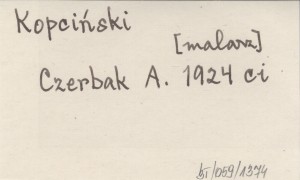 Kopciński
[malarz]
Czerbak A. 1924 ci
bI/059/1374